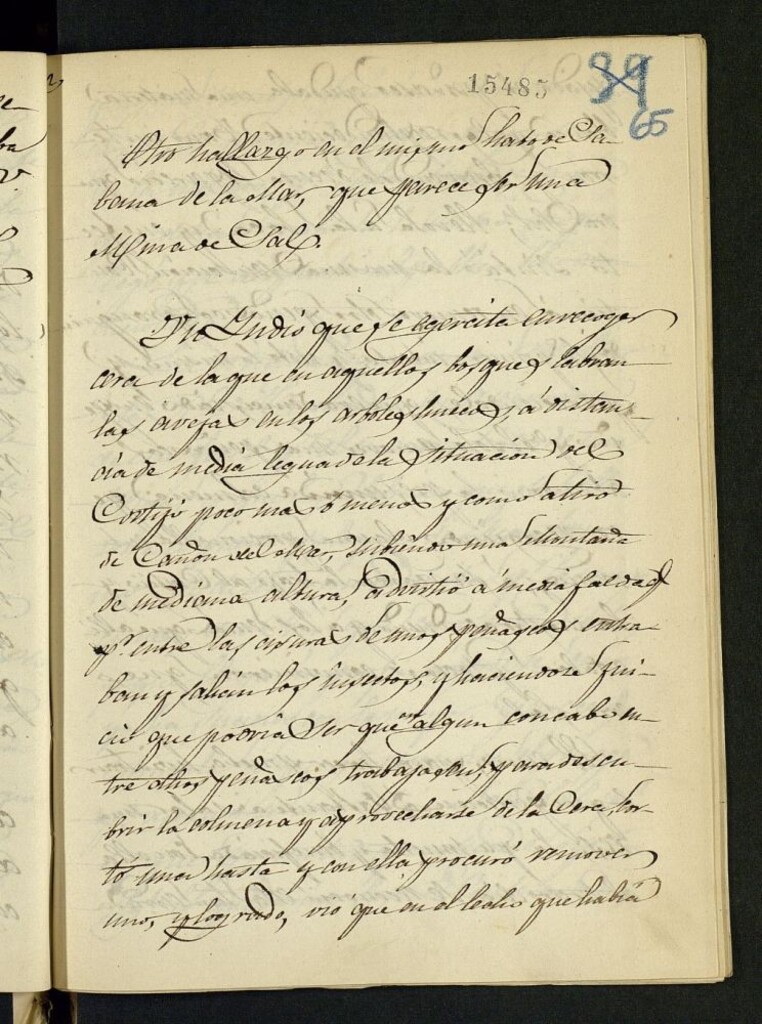 15485
39
65
Otro hallazgo en el mismo hato de Sa-
bana de la Mar, que parece ser una
Mina de Sal.
Un Indio que se egercita en recoger
cera de la que en aquellos bosques labran
las avejas en los arboles huecos, á distan-
cia de media legua de la situacion del
Cortijo poco mas ó menos y como á tiro
de Cañon del Mar, subiendo una Montaña
de mediana altura, advirtió á media falda q
pr. entre las cisuras de unos peñascos entra-
ban y salian los insectos, y haciendose jui-
cio que podria ser que en algun concabo en-
tre dhos peñascos trabajasen, para descu-
brir la colmena y aprovecharse de la Cera, cor-
tó una hasta y con ella procuró remover
uno, y logrado, vió que en el lecho que habia